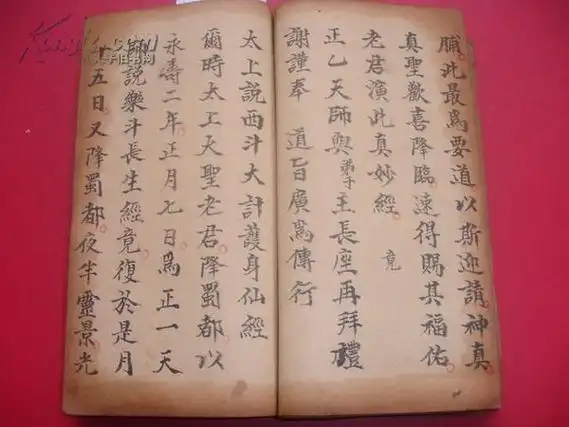 脯此最爲要道以斯迎請神真
真聖歡喜降臨速得賜其福佑
老君演此真妙經 竟
正乙天師與弟子王長座再拜禮
謝謹奉 道旨廣爲傳行
太上說西斗大計護身仙經
爾時太上大聖老君降蜀都以
永壽二年正月七日爲正一天
師說樂斗長生經竟復於是月
十五日又降蜀都夜半靈景光